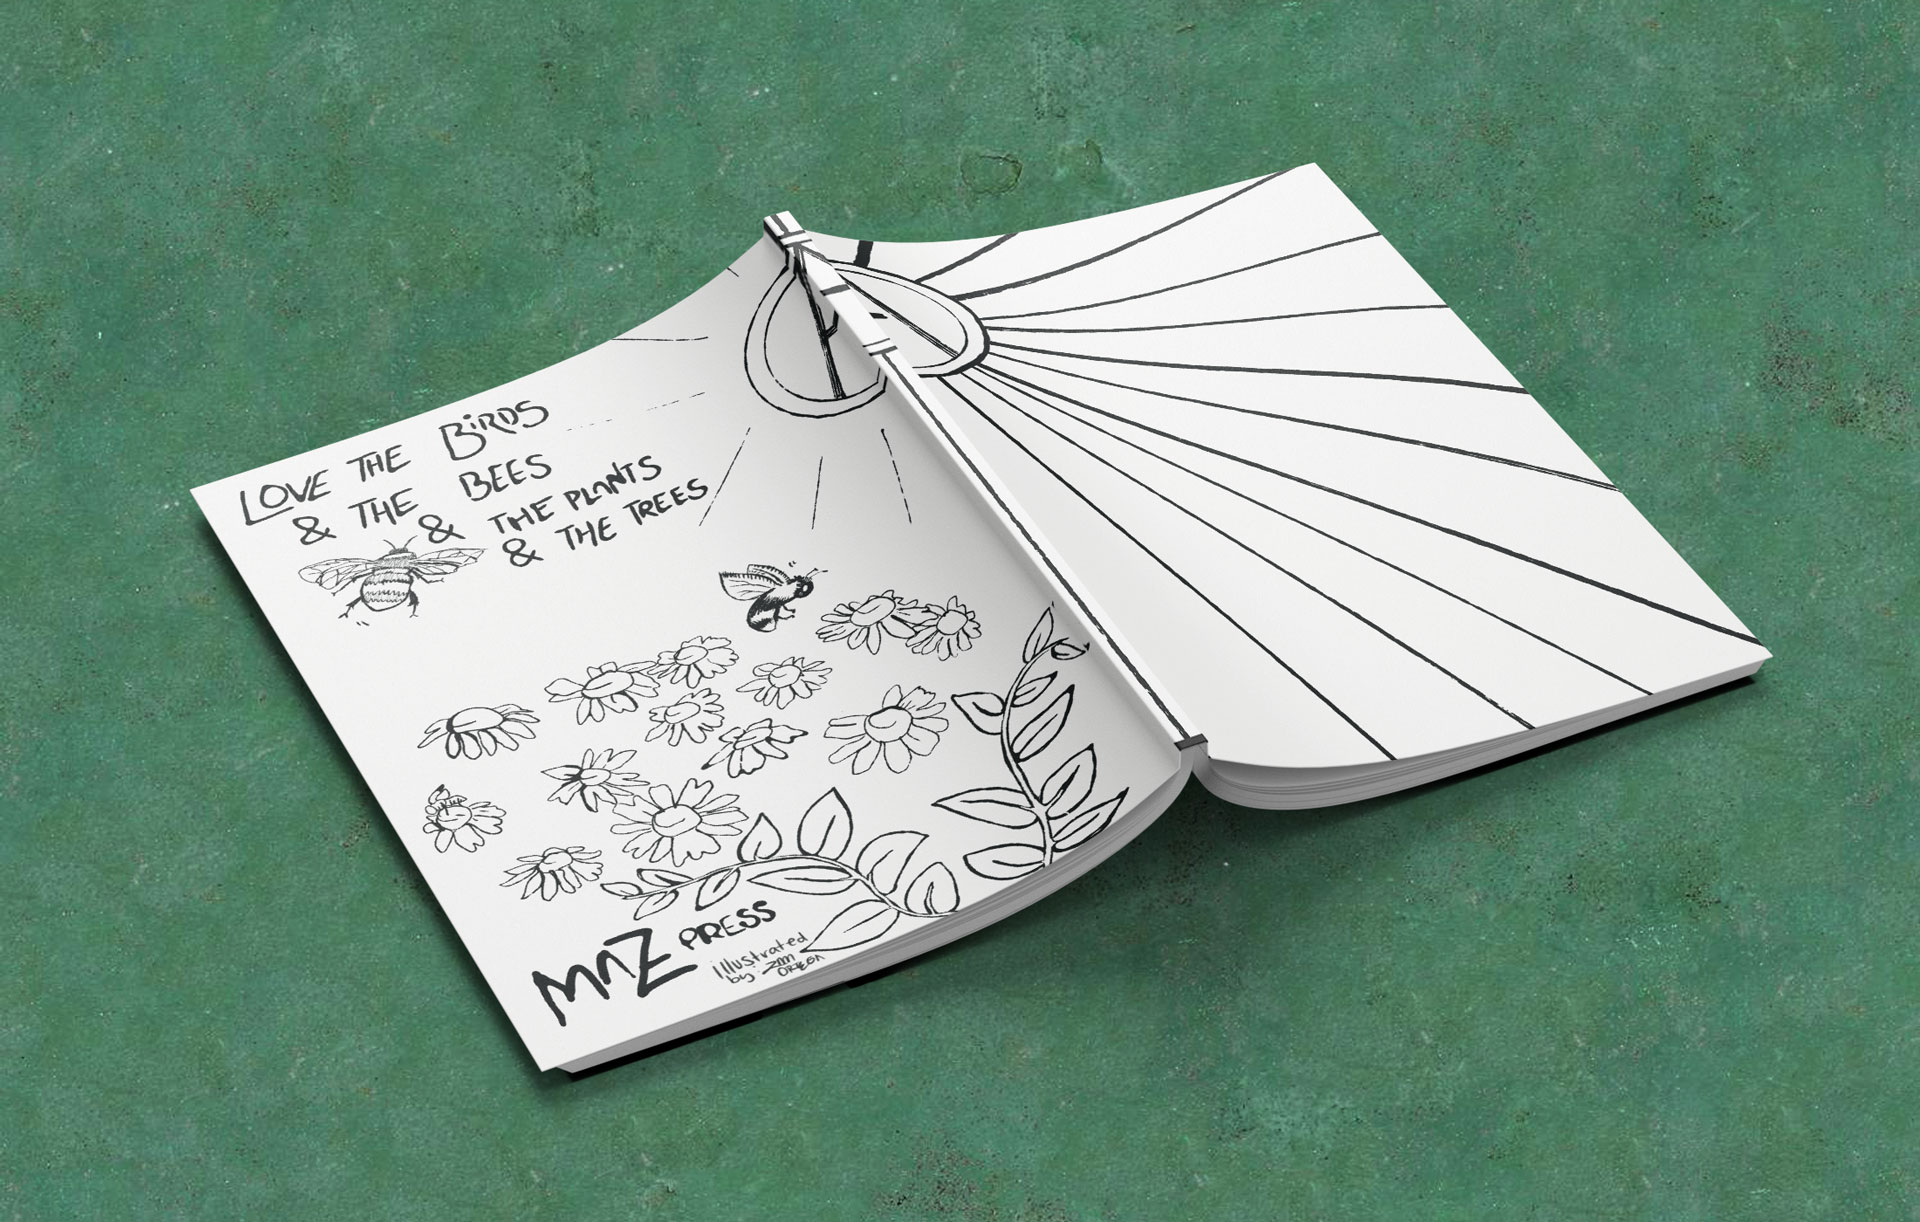 LOVE THE BIRDS
& THE BEES
& THE PLANTS
& THE TREES
MNZ PRESS
illustrated
by:
ORTEGA